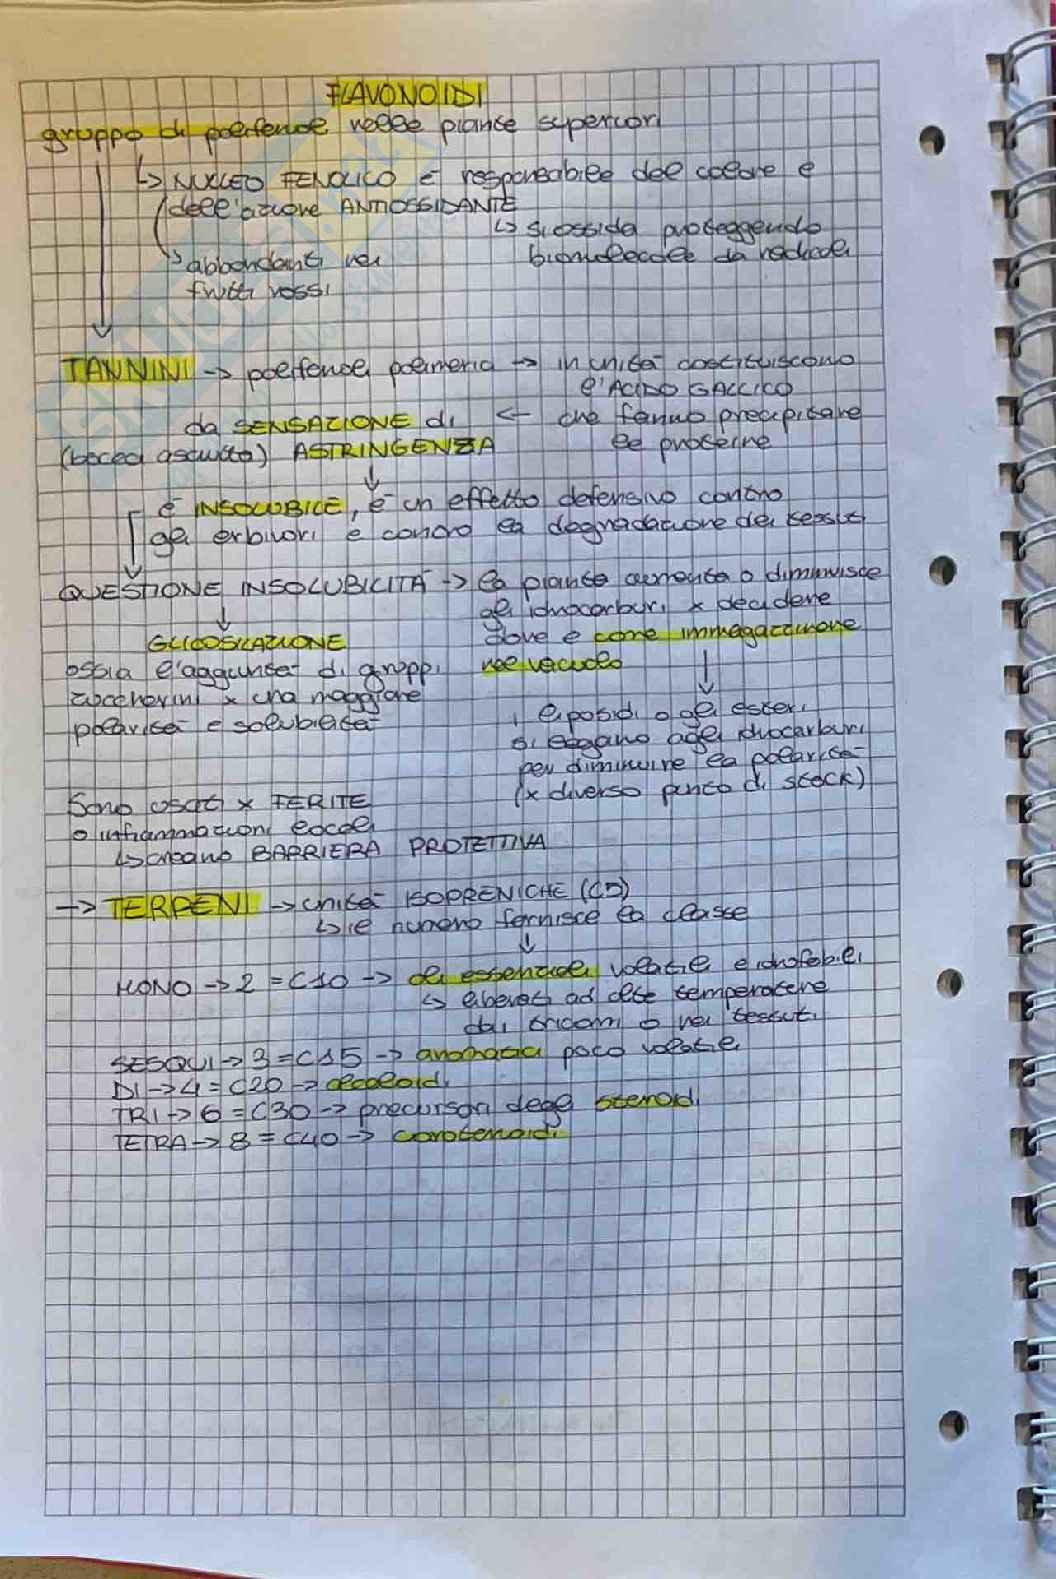 FLAVONOIDI
gruppo di polifenoli nelle piante superiori
↳ NUCLEO FENOLICO è responsabile del colore e
dell'azione ANTIOSSIDANTE
↳ si ossida proteggendo
biomolecole da radicali
→ abbondanti nei
frutti rossi
TANNINI → polifenoli polimerici → in unità costituiscono
l'ACIDO GALLICO
da SENSAZIONE di ← che fanno precipitare
le proteine
(bocca asciutta) ASTRINGENZA
è INSOLUBILE, è un effetto difensivo contro
gli erbivori e contro la degradazione dei tessuti
QUESTIONE INSOLUBILITÀ → la pianta aumenta o diminuisce
gli idrocarburi x decidere
dove e come immagazzinare
nel vacuolo
GLICOSILAZIONE
ossia l'aggiunta di gruppi
zuccherini x una maggiore
polarità e solubilità
i lipidi o gli esteri
si legano agli idrocarburi
per diminuire la polarità
(x diverso punto di stock)
Sono usati x FERITE
o infiammazioni locali
↳ creano BARRIERA PROTETTIVA
→ TERPENI → unità ISOPRENICHE (C5)
↳ il numero fornisce la classe
MONO → 2 = C10 → oli essenziali volatili e idrofobici
↳ liberati ad alte temperature
dai tricomi o nei tessuti
SESQUI → 3 = C15 → aromatici poco volatili
DI → 4 = C20 → alcaloidi
TRI → 6 = C30 → precursori degli steroidi
TETRA → 8 = C40 → carotenoidi